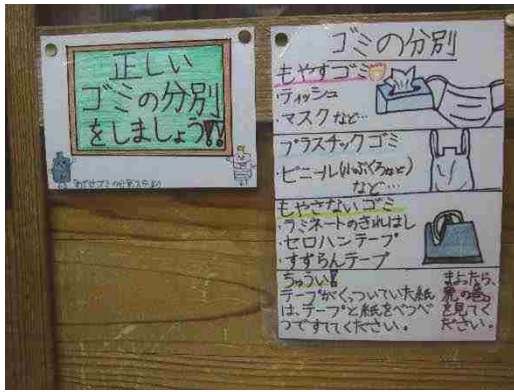 正しい
ゴミの分別
をしましょう!!
ゴミの分別
もやすゴミ
・ティッシュ
・マスクなど…
プラスチックゴミ
・ビニール(小ぶくろなど)
など…
もやさないゴミ
・ラミネートのきれはし
・セロハンテープ
・すずらんテープ
ちゅうい!!
テープがくっついていた紙
は、テープと紙をべつべ
つですててください。
まよったら、
虎の巻
を見てく
ださい。